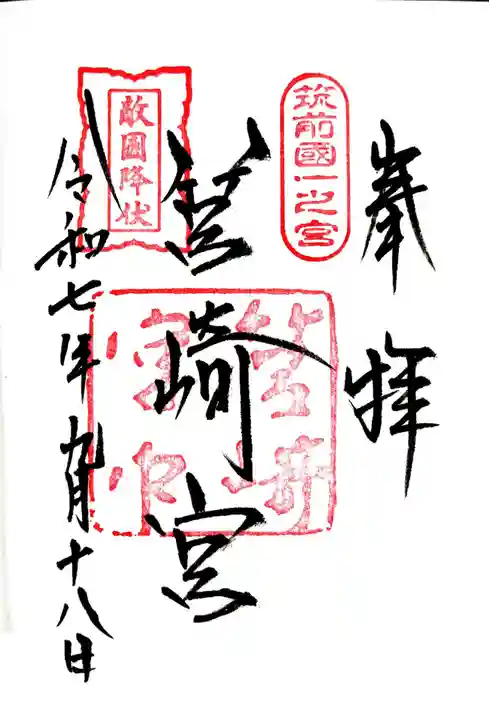 奉拝
筑前國一之宮
筥崎宮
筥崎
宮印
敵國降伏
令和七年九月十八日